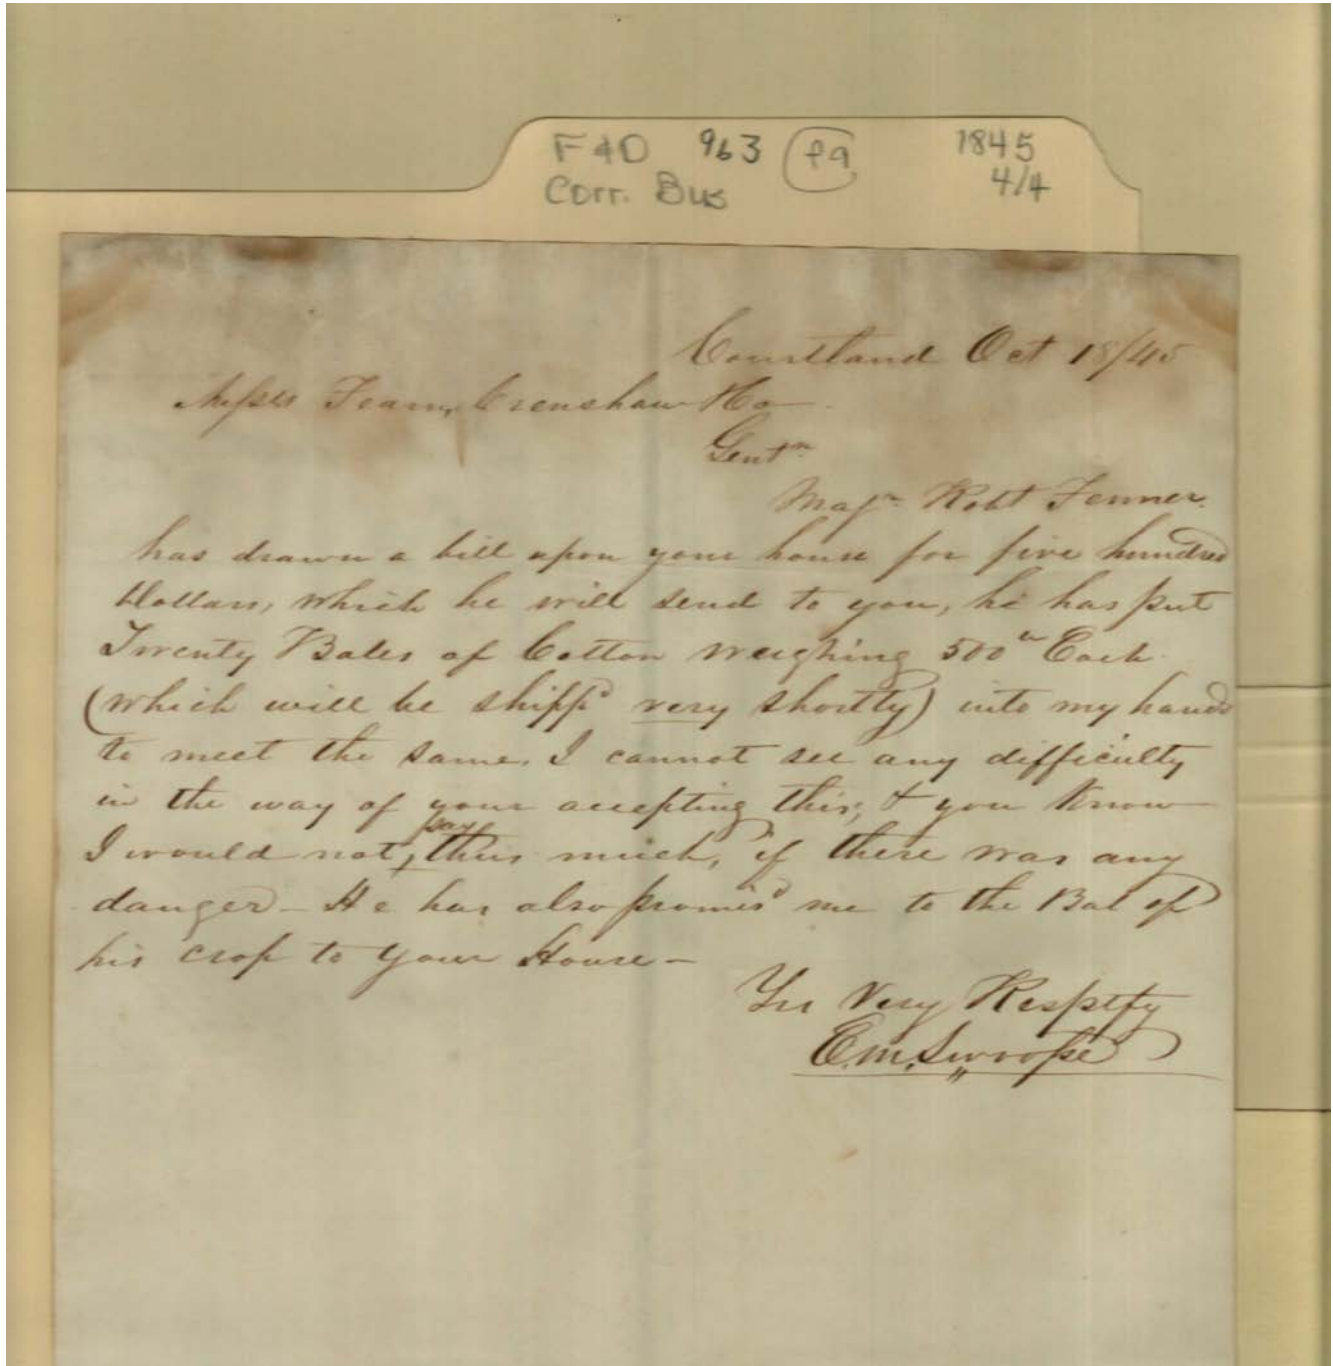 F&D 963 f9 1845
Corr. Bus 4/4
Courtland Oct 18/45
Messrs Fearn, Crenshaw & Co
Gentn
Majr Robt Fenner
has drawn a bill upon your house for five hundred
Dollars, which he will send to you, he has put
Twenty Bales of Cotton weighing 500lb Each
(which will be shippd very shortly) into my hands
to meet the same. I cannot see any difficulty
in the way of your accepting this, & you know
I would not say thus much, if there was any
danger - He has also promisd me to the Bal of
his crop to your House -
Yrs Very Respetfy
E.M. Swoope